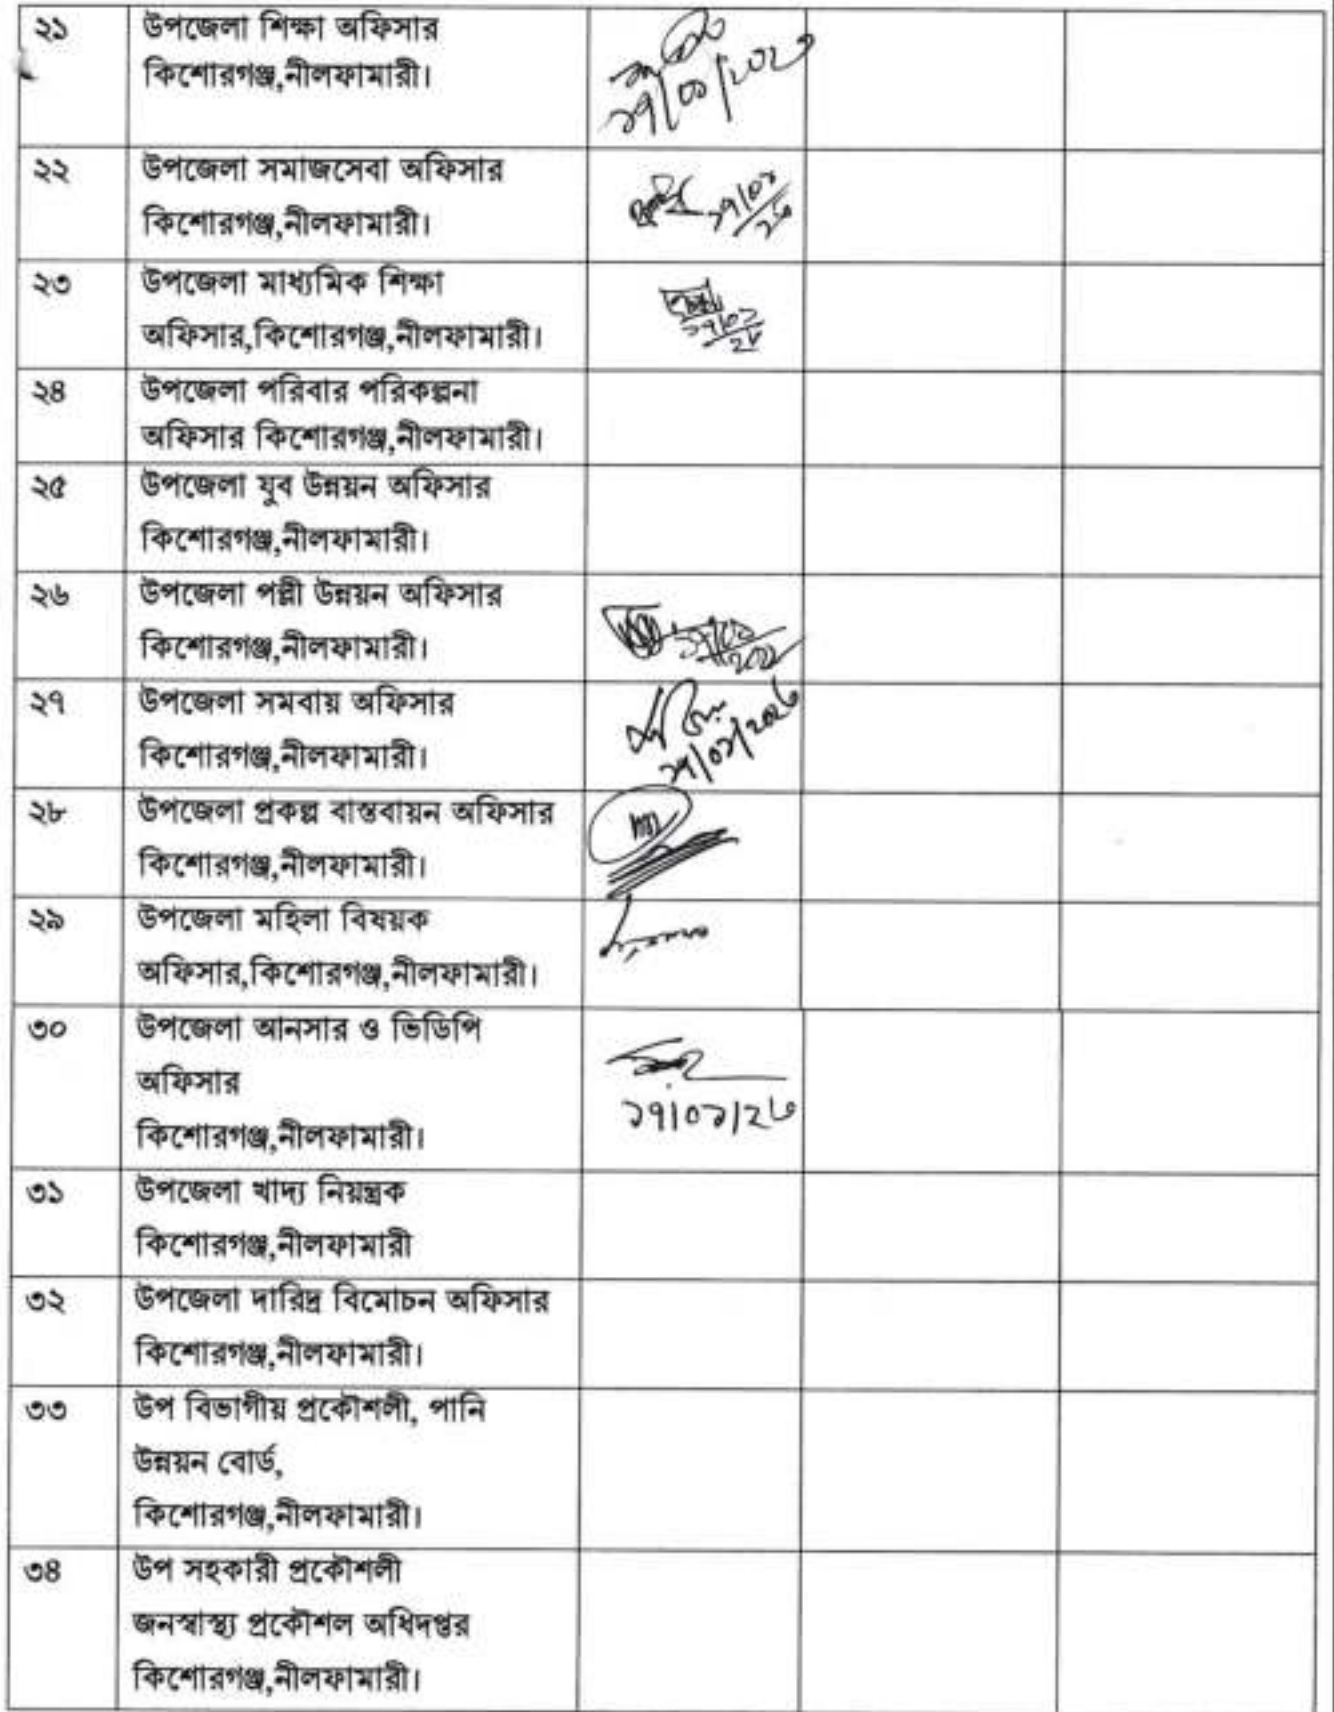 ২১
উপজেলা শিক্ষা অফিসার
কিশোরগঞ্জ,নীলফামারী।
২২
উপজেলা সমাজসেবা অফিসার
কিশোরগঞ্জ,নীলফামারী।
২৩
উপজেলা মাধ্যমিক শিক্ষা
অফিসার,কিশোরগঞ্জ,নীলফামারী।
২৪
উপজেলা পরিবার পরিকল্পনা
অফিসার কিশোরগঞ্জ,নীলফামারী।
২৫
উপজেলা যুব উন্নয়ন অফিসার
কিশোরগঞ্জ,নীলফামারী।
২৬
উপজেলা পল্লী উন্নয়ন অফিসার
কিশোরগঞ্জ,নীলফামারী।
২৭
উপজেলা সমবায় অফিসার
কিশোরগঞ্জ,নীলফামারী।
২৮
উপজেলা প্রকল্প বাস্তবায়ন অফিসার
কিশোরগঞ্জ,নীলফামারী।
২৯
উপজেলা মহিলা বিষয়ক
অফিসার,কিশোরগঞ্জ,নীলফামারী।
৩০
উপজেলা আনসার ও ভিডিপি
অফিসার
কিশোরগঞ্জ,নীলফামারী।
১৭/০১/২৬
৩১
উপজেলা খাদ্য নিয়ন্ত্রক
কিশোরগঞ্জ,নীলফামারী
৩২
উপজেলা দারিদ্র বিমোচন অফিসার
কিশোরগঞ্জ,নীলফামারী।
৩৩
উপ বিভাগীয় প্রকৌশলী, পানি
উন্নয়ন বোর্ড,
কিশোরগঞ্জ,নীলফামারী।
৩৪
উপ সহকারী প্রকৌশলী
জনস্বাস্থ্য প্রকৌশল অধিদপ্তর
কিশোরগঞ্জ,নীলফামারী।